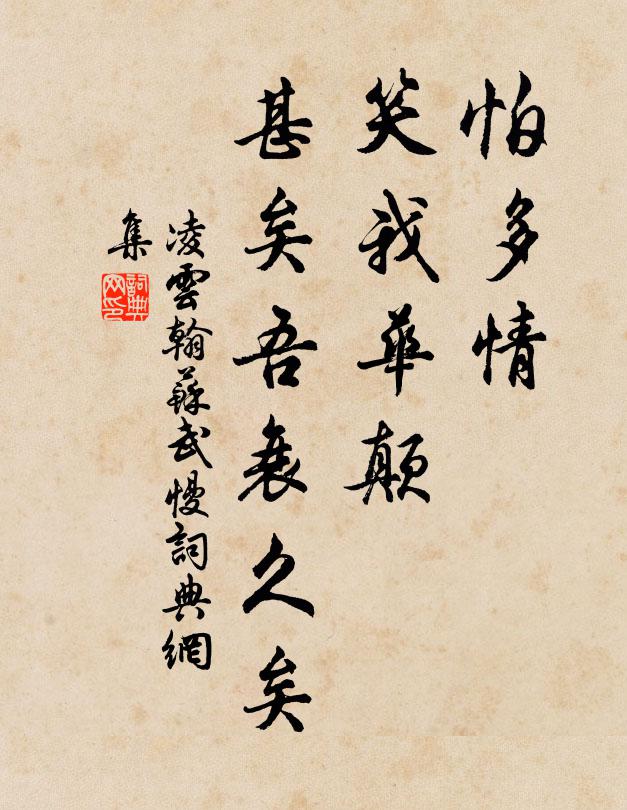 怕多情
笑我華顛
甚矣吾衰久矣
凌雲翰蘇武慢詞典網
集
詞典
网印